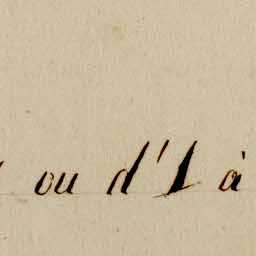 ou d'1 à